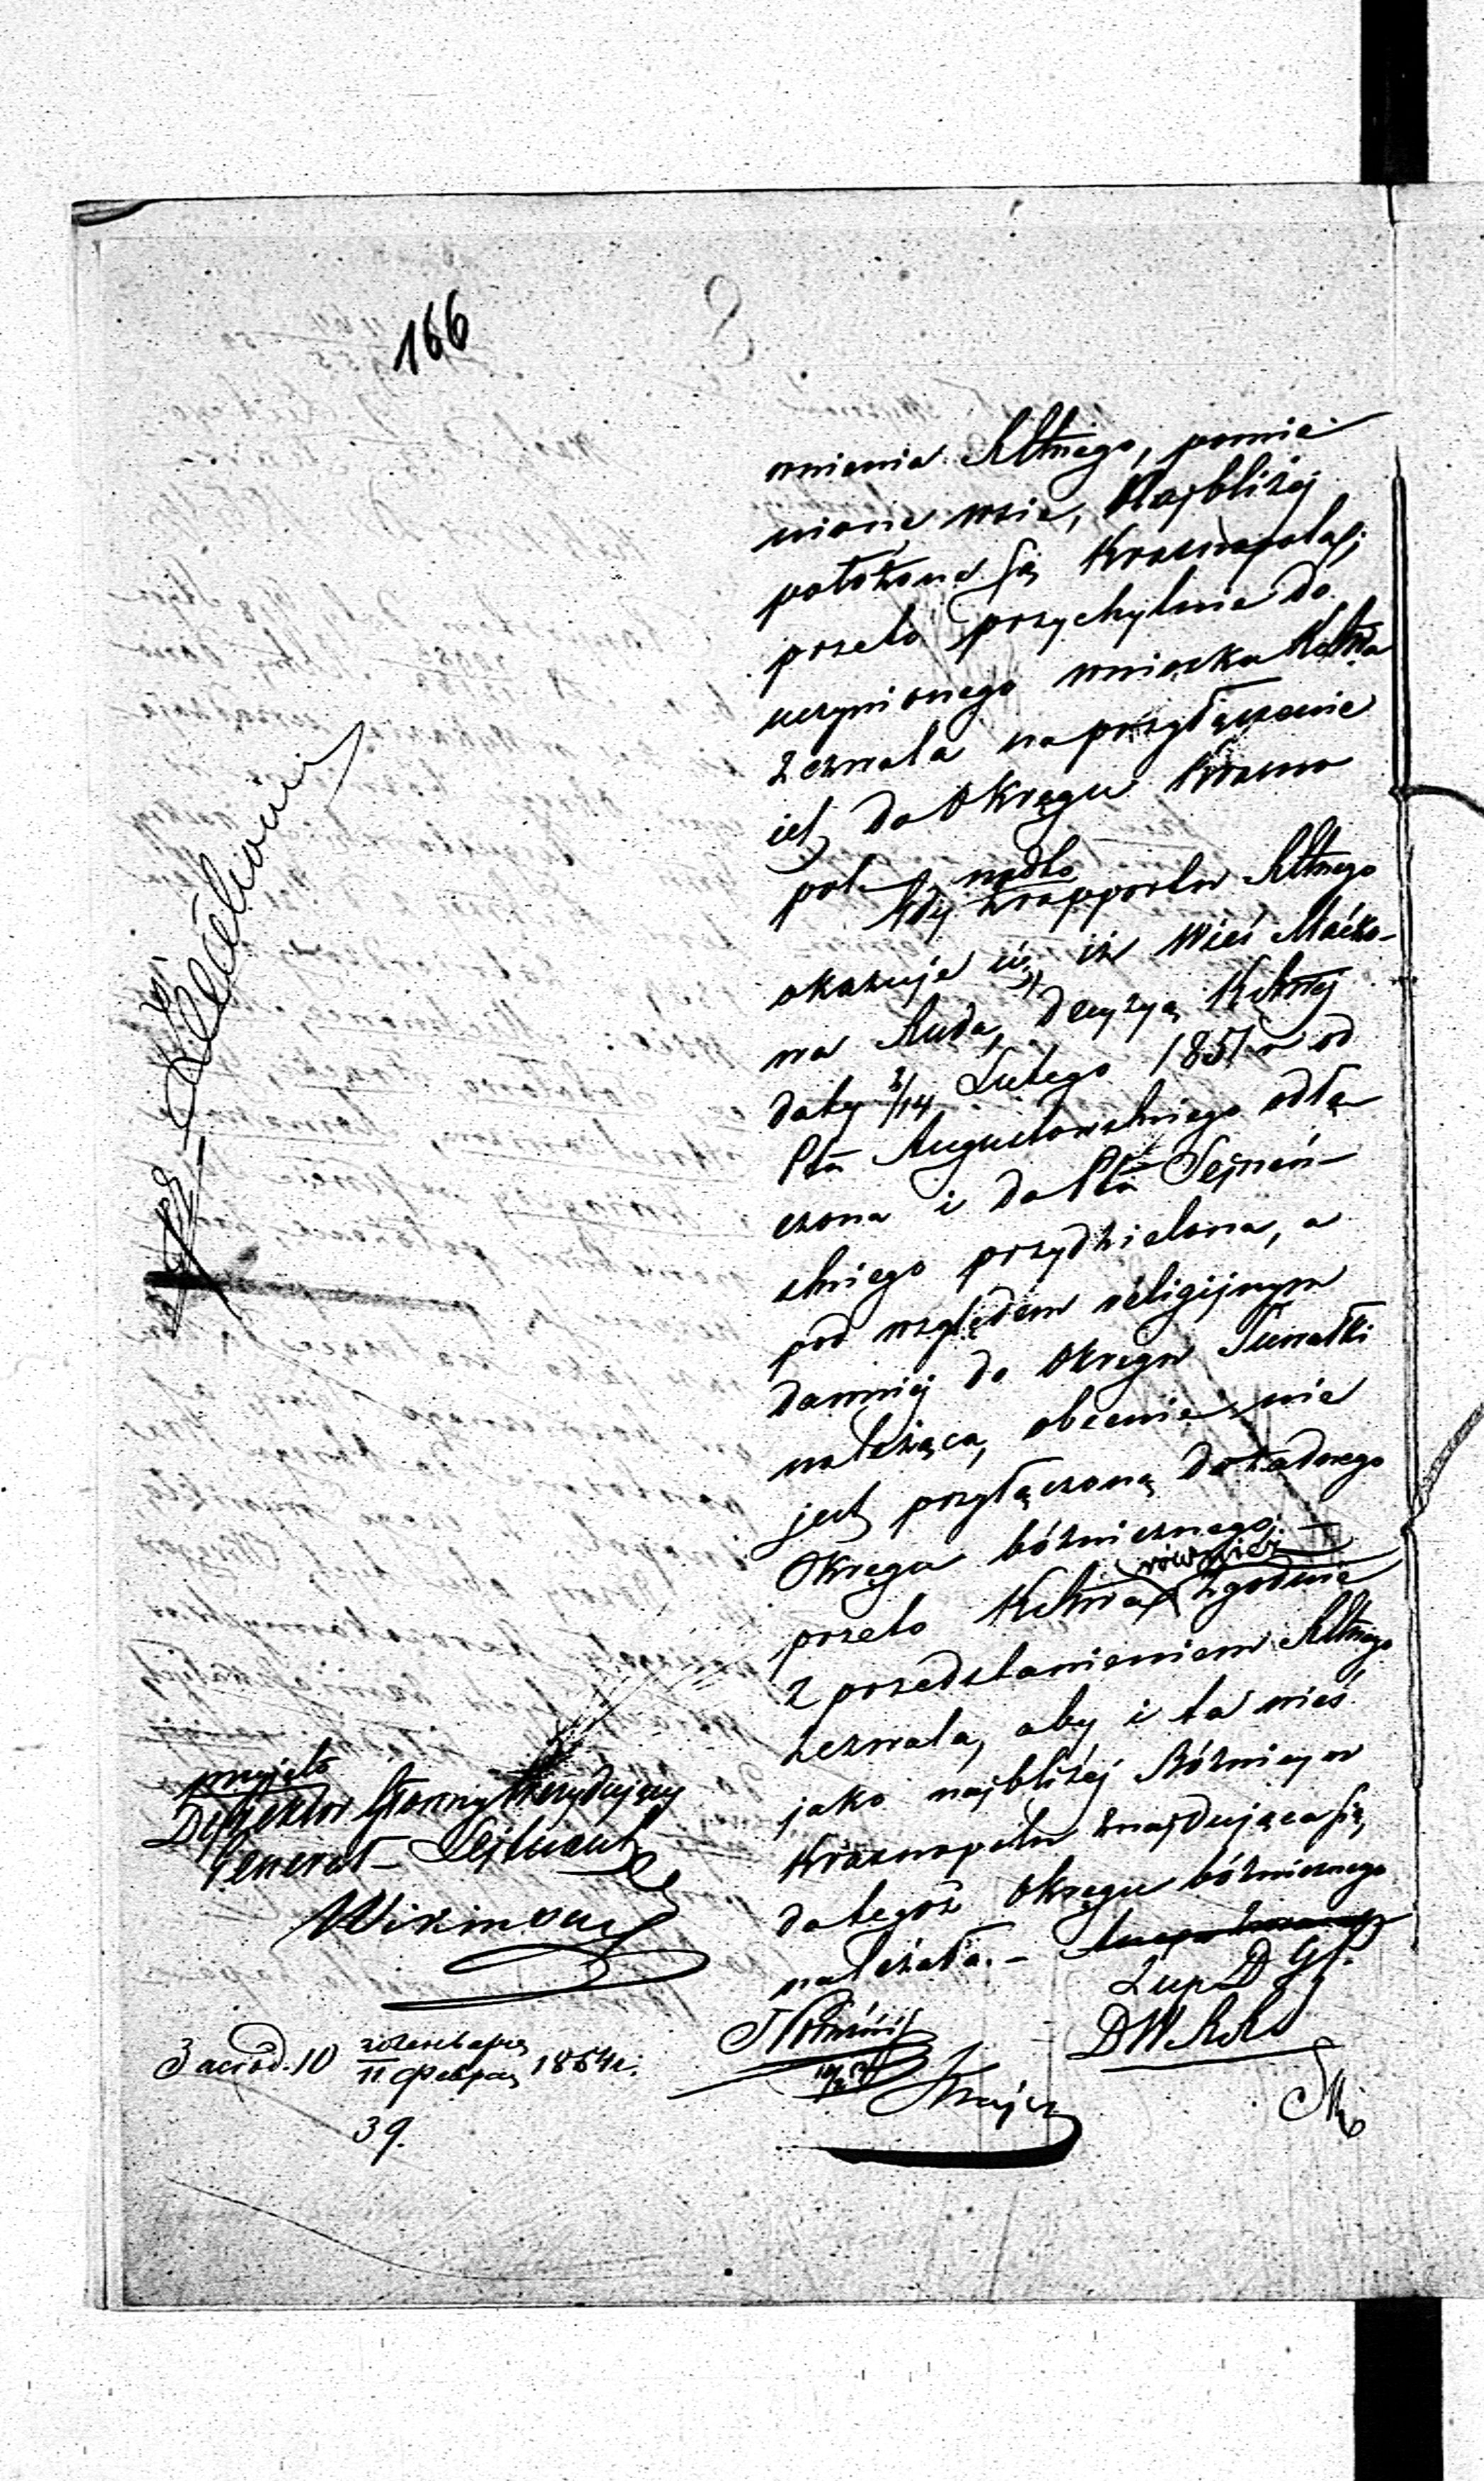 166
wnienia Rłtnego, pomie-
nione wsie, Najbliżej
położone są Krasnopola;
przeto przychylnie do
uczynionego wniosku Kłtna
zezwala na przyłączenie
ich do Okręgu Krasno
pol
nadto
Gdy z rapportu Rłtnego
okazuje się, iż Wieś Maćko-
wa Ruda, decyzyą Kłtnej
daty 2/14 Lutego 1851 r od
Ptu Augustowskiego odłą
czona i do Ptu Sejneń-
skiego przydzielona, a
pod względem religijnym
dawniej do Okręgu Suwałki
należąca, obecnie nie
jest przyłączoną do żadnego
Okręgu bóżniczego;
również
przeto Kłtna zgodnie
z przedstawieniem Rłtnego
zezwala, aby i ta wieś
jako najbliżej Bóżnicy w
Krasnopolu znajdująca się,
do tegoż Okręgu bóżniczego
należała. –
przyjęto
Dyrektor Główny Prezydujący
Generał – Lejtnant
Wikinski
Засѣд. 10 20 Января / 11 Февраля 1854 г.
39.